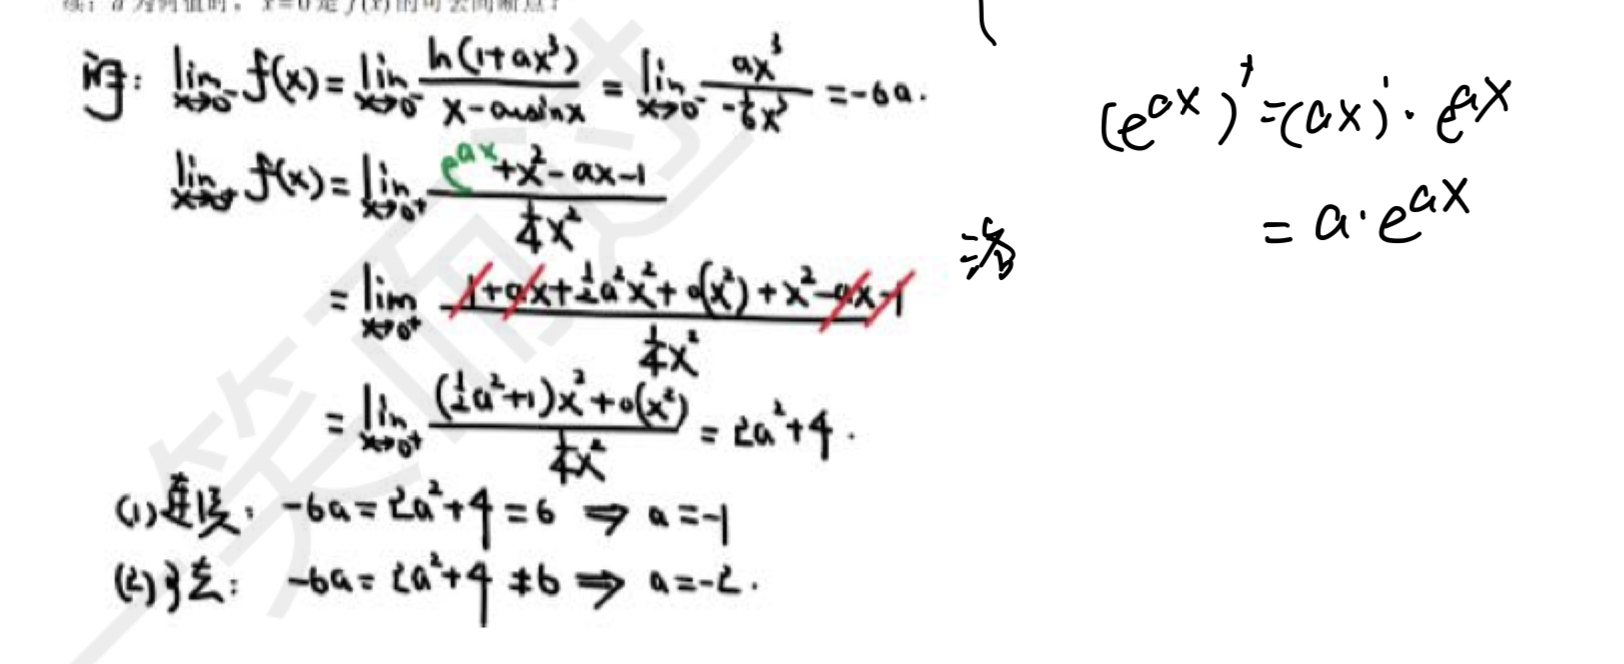 a 为何值时, x=0 是 f(x) 的可去间断点?
解: lim x→0⁻ f(x) = lim x→0⁻ ln(1+ax³) / (x-arcsinx) = lim x→0⁻ ax³ / (-1/6 x³) = -6a.
lim x→0⁺ f(x) = lim x→0⁺ (e^{ax}+x²-ax-1) / (1/4 x²)
= lim x→0⁺ (1+ax+½a²x²+o(x²)+x²-ax-1) / (1/4 x²)
= lim x→0⁺ ((½a²+1)x²+o(x²)) / (1/4 x²) = 2a²+4.
(1)连续: -6a=2a²+4=6 ⇒ a=-1
(2)可去: -6a=2a²+4≠6 ⇒ a=-2.
(e^{ax})'=(ax)'·e^{ax}
= a·e^{ax}
=洛
一笑而过